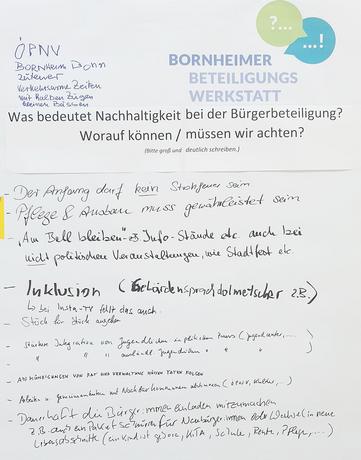 ÖPNV
BORNHEIM Dorn
zuteuer
Verkehrsarme Zeiten
mit halben Zügen
kleinen Bussen
?...
...!
BORNHEIMER
BETEILIGUNGS
WERKSTATT
Was bedeutet Nachhaltigkeit bei der Bürgerbeteiligung?
Worauf können / müssen wir achten?
(Bitte groß und deutlich schreiben.)
- Der Anfang darf kein Strohfeuer sein
- Pflege & Ausbau muss gewährleistet sein
- "Am Ball bleiben" Info-Stände etc auch bei
nicht politischen Veranstaltungen, wie Stadtfest etc.
- Inklusion (Gebärdensprachdolmetscher z.B.)
↳ bei Insta-TV fehlt das auch.
- Stück für Stück angehen
- stärkere Integration von Jugendlichen in politischen (Jugendcenter, ...)
- " " " " " "
- ANKÜNDIGUNGEN VON RAT UND VERWALTUNG MÜSSEN TATEN FOLGEN
- Arbeiten gemeinsam mit Nachbarkommunen abstimmen (ÖPNV, Kultur, ...)
- Dauerhaft die Bürger:innen einladen mitzumachen
z.B. auch ein Paket schnüren für Neubürger:innen oder Wechsel in neue
Lebensabschnitte (ein Kind ist geboren, KiTa, Schule, Rente, Pflege, ...)